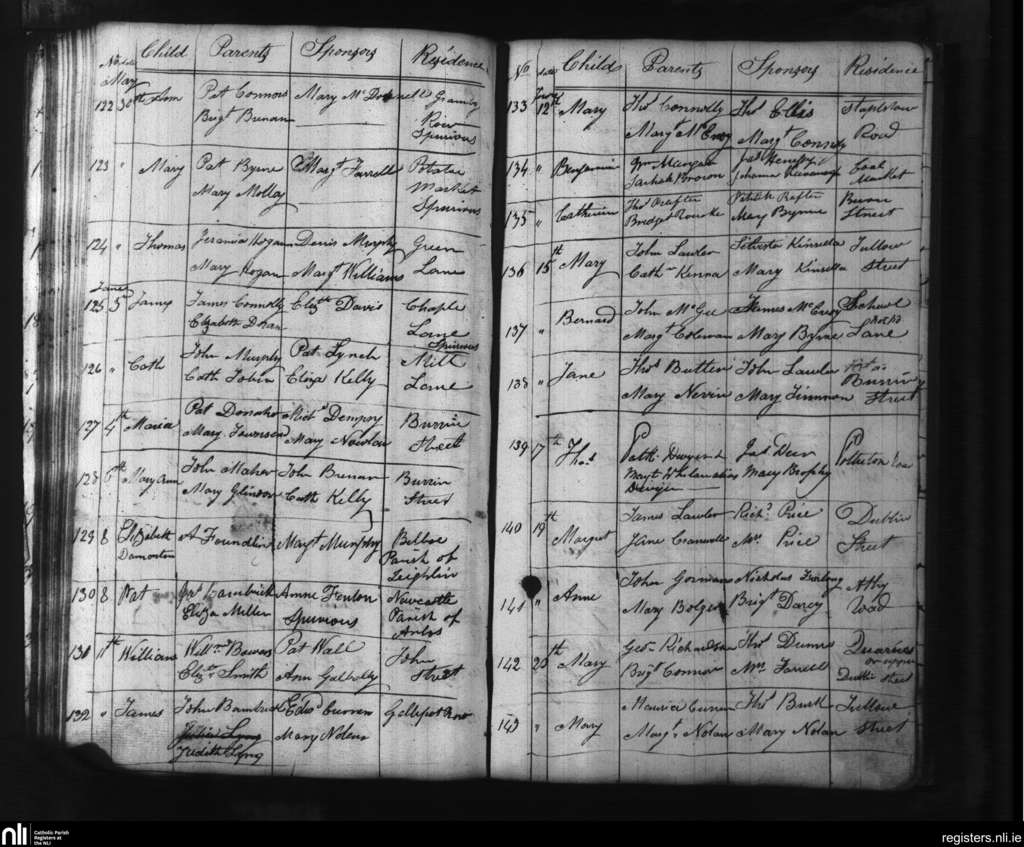 No date Child Parents Sponsors Residence
May
122 30th Ann Pat Connors Mary McDonnell Granby
Brigt Brenan Row
Spurious
123 " Mary Pat Byrne Margt Farrell Potatoe
Mary Molloy Market
Spurious
124 " Thomas Hogan Denis Murphy Green
Mary Hogan Margt Williams Lane
June
125 3d James James Connolly Elizth Davis Chaple
Elizabeth Doran Lane
Spurious
126 " Cath John Murphy Pat Lynch Mill
Cath Tobin Eliza Kelly Lane
127 4th Maria Pat Donaho Michl Dempsy Burrin
Mary Townsend Mary Nowlan Street
128 6th Mary Ann John Maher John Brenan Burrin
Mary Cath Kelly Street
129 8 Elizabeth A Foundlin Margt Murphy
Parish of
Leighlin
130 8 Pat Anne Fenlon Newcastle
Eliza Miller Spurious Parish of
131 11th William Willm Bowers Pat Wall John
Elizth Smith Ann Galbally Street
132 " James John Edwd Curren Row
Julia Lyng Mary Nolan
Judith Lyng
No date Child Parents Sponsors Residence
June
133 12th Mary Thos Connolly Thos Ellis Staplestown
Margt McEvoy Margt Connolly Road
134 " Benjamin Mangan Coal
Brown Johanna Kavanagh Market
135 " Catherine Thos Rafter Patrick Rafter Burrin
Bridget Rourke Mary Byrne Street
136 15th Mary John Lawler Kinsella Tullow
Cathn Kenna Mary Kinsella Street
137 " Bernard John McGee James McEvoy
Margt Coleman Mary Byrne Lane
138 " Jane Thos Butler John Lawler
Mary Nevin Mary Timmon Burrin
Street
139 17th Thos Jas Deer Pollerton Road
Margt Whelan alias Mary Brophy
Dwyer
140 19th Margret James Lawler Richd Price Dublin
Mrs Price Street
141 " Anne John Gorman Nicholas Athy
Mary Bolger Brigt Darcy Road
142 20th Mary Geo. Richardson Thos Dunne Quarries
Brigt Connor Mrs Farrell or upper
Dublin street
143 " Mary Maurice Curren Thos Burk Tullow
Margt Nolan Mary Nolan Street
nli
Catholic Parish
Registers at
the NLI
registers.nli.ie